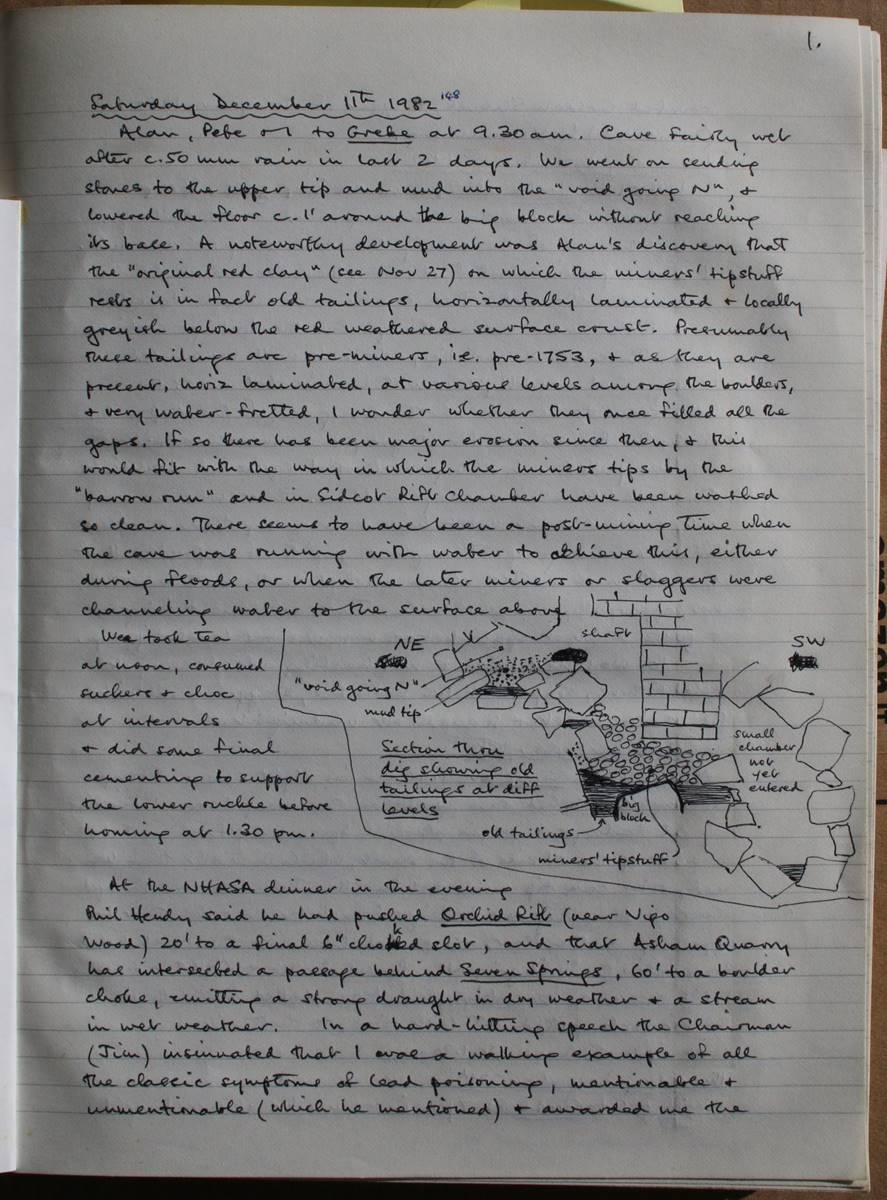 1.
Saturday December 11th 1982 148
Alan, Pete & I to Grebe at 9.30am. Cave fairly wet
after c.50mm rain in last 2 days. We went on sending
stones to the upper tip and mud into the "void going N", &
lowered the floor c.1' around the big block without reaching
its base. A noteworthy development was Alan's discovery that
the "original red clay" (see Nov 27) on which the miners' tipstuff
rests is in fact old tailings, horizontally laminated & locally
greyish below the red weathered surface crust. Presumably
these tailings are pre-miners, i.e. pre-1753, & as they are
present, horiz laminated, at various levels among the boulders,
& very water-fretted, I wonder whether they once filled all the
gaps. If so there has been major erosion since then, & this
would fit with the way in which the miners tips by the
"barrow run" and in Sidcot Rift Chamber have been washed
so clean. There seems to have been a post-mining time when
the cave was running with water to achieve this, either
during floods, or when the later miners or slaggers were
channeling water to the surface above
We took tea
at noon, consumed
suckers & choc
at intervals
& did some final
cementing to support
the lower ruckle before
homing at 1.30 pm.
NE
shaft
SW
"void going N"
mud tip
Section thru
dig showing old
tailings at diff
levels
small
chamber
not
yet
entered
big
block
old tailings
miners' tipstuff
At the NHASA dinner in the evening
Phil Hendy said he had pushed Orchid Rift (near Vipo
Wood) 20' to a final 6" choked slot, and that Asham Quarry
has intersected a passage behind Seven Springs, 60' to a boulder
choke, emitting a strong draught in dry weather & a stream
in wet weather. In a hard-hitting speech the Chairman
(Jim) insinuated that I was a walking example of all
the classic symptoms of lead poisoning, mentionable &
unmentionable (which he mentioned) & awarded me the